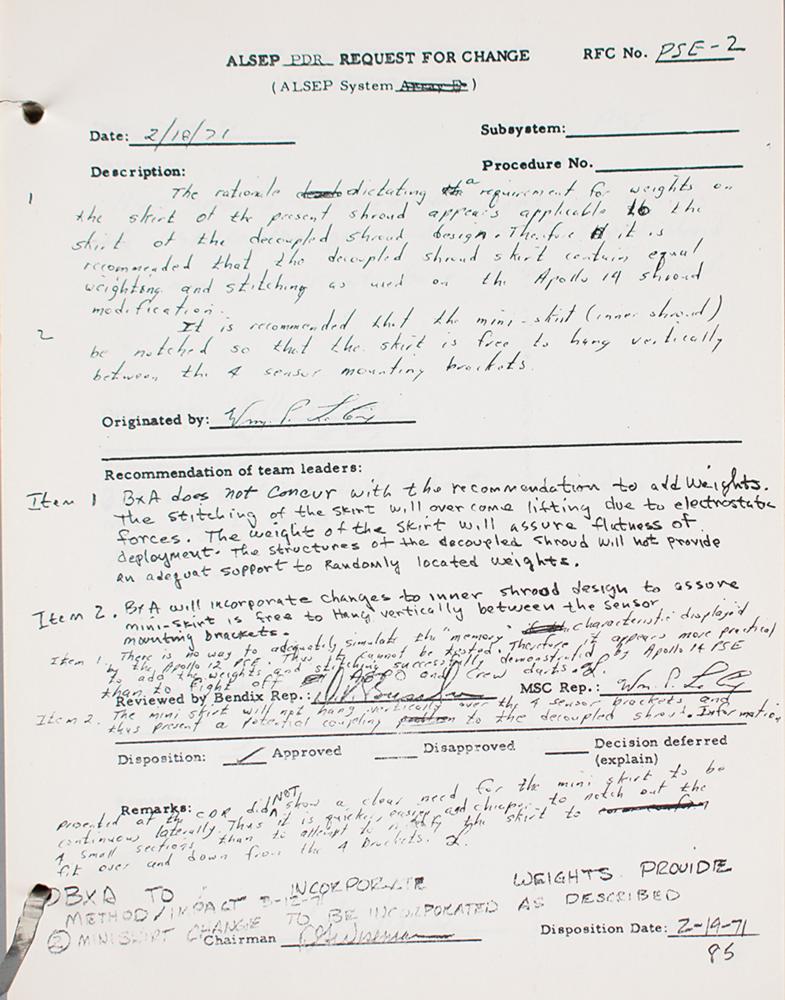 ALSEP PDR REQUEST FOR CHANGE RFC No. PSE-2
(ALSEP System Array E)
Date: 2/18/71 Subsystem:
Description: Procedure No.
1 The rationale dictating a requirement for weights on
the skirt of the present shroud appears applicable to the
skirt of the decoupled shroud design. Therefore it is
recommended that the decoupled shroud skirt contain equal
weighting and stitching as used on the Apollo 14 shroud
modification.
2 It is recommended that the mini-skirt (inner shroud)
be notched so that the skirt is free to hang vertically
between the 4 sensor mounting brackets.
Originated by: Wm. P.
Recommendation of team leaders:
Item 1 BxA does not concur with the recommendation to add weights.
The stitching of the skirt will overcome lifting due to electrostatic
forces. The weight of the skirt will assure flatness of
deployment. The structures of the decoupled shroud will not provide
an adequat support to Randomly located weights.
Item 2. BxA will incorporate changes to inner shroud design to assure
mini-skirt is free to Hang vertically between the sensor
mounting brackets.
Item 1. There is no way to adequately simulate the "memory" characteristic displayed
by the Apollo 12 PSE. Thus it cannot be tested. Therefore it appears more practical
to add the weights and stitching successfully demonstrated by Apollo 14 PSE
than to fight off and Crew
Reviewed by Bendix Rep.: MSC Rep.: Wm. P.
Item 2. The mini skirt will not hang vertically over the 4 sensor brackets and
thus present a potential coupling to the decoupled shroud. Information
Disposition: ✓ Approved Disapproved Decision deferred
(explain)
Remarks:
presented at the CDR did NOT show a clear need for the mini skirt to be
continuous laterally. Thus it is quicker, easier and cheaper to notch out the
4 small sections than to attempt to the skirt to
fit over and down from the 4 brackets.
① BXA TO INCORPORATE WEIGHTS PROVIDE
METHOD/IMPACT 3-12-71
② MINISKIRT CHANGE TO BE INCORPORATED AS DESCRIBED
Chairman Disposition Date: 2-19-71
85